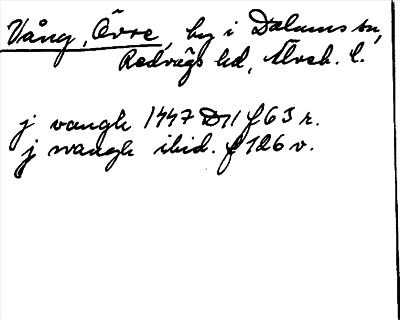 Vång, Övre, by i Dalums sn,
Redvägs hd, Älvsb. l.
j vangh 1447 D 11 f 63 r.
j wangh ibid. f 126 v.